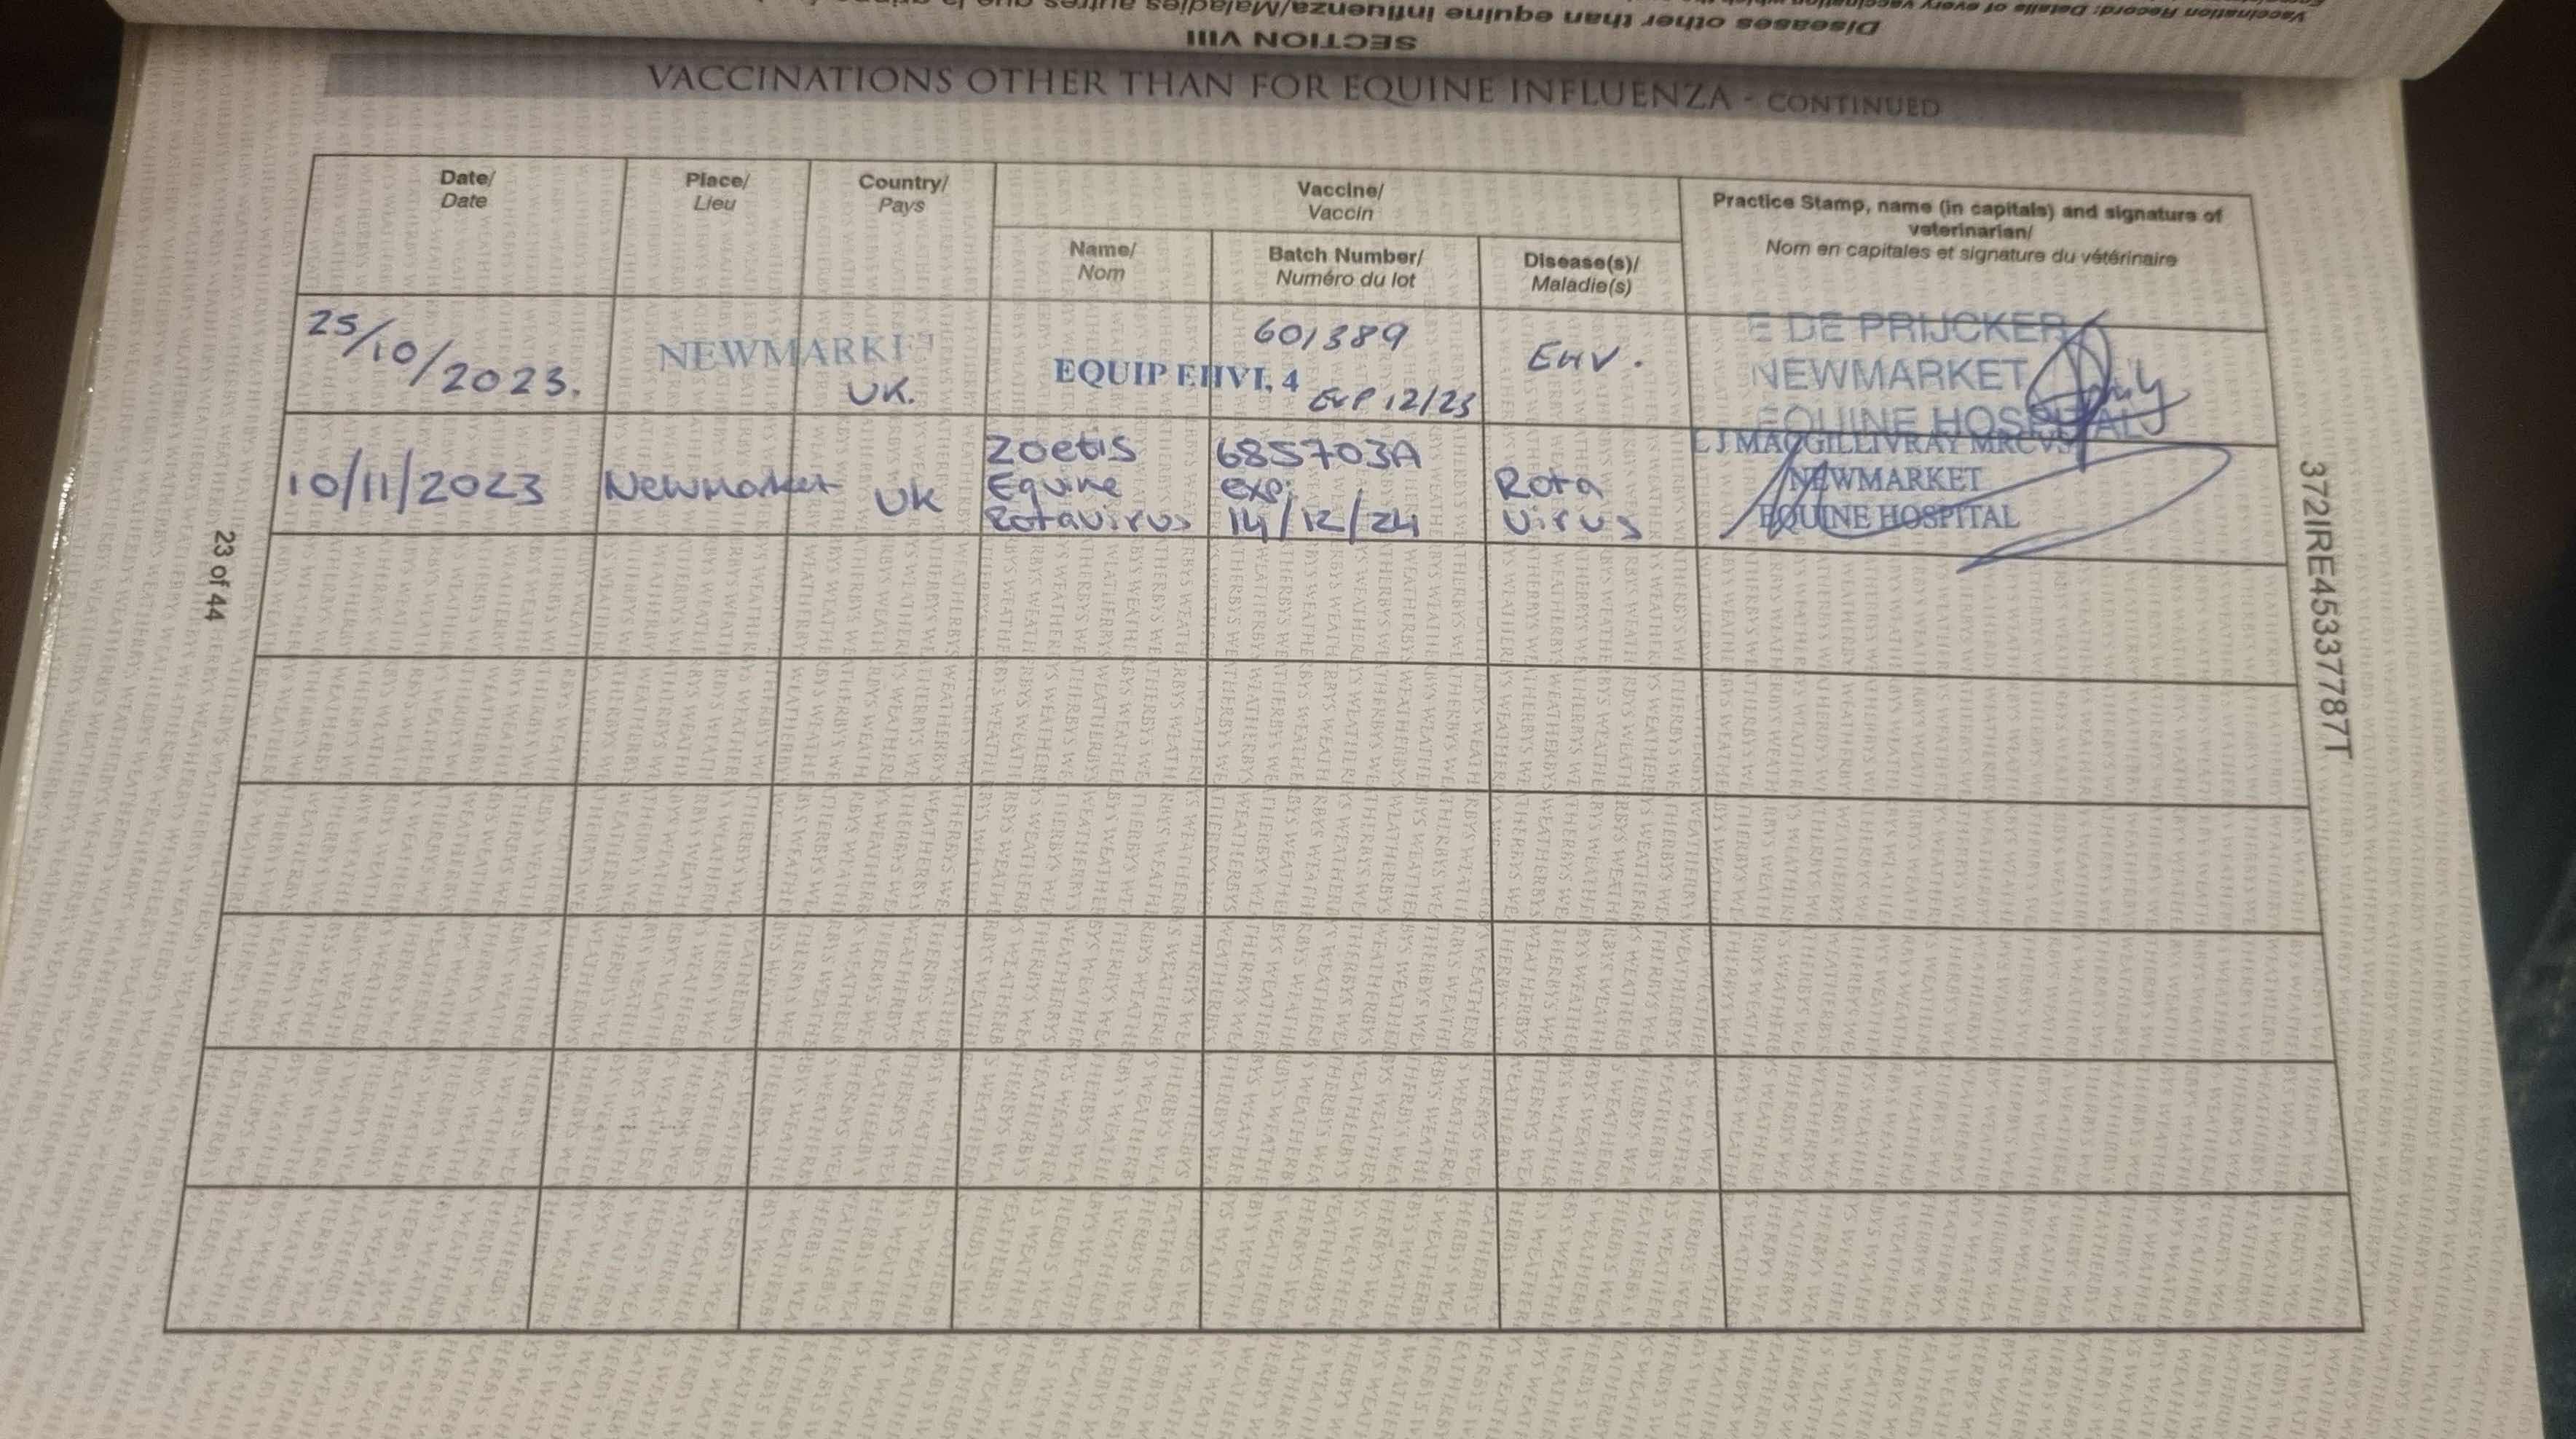 Diseases other than equine influenza/Maladies autres que la
SECTION VIII
VACCINATIONS OTHER THAN FOR EQUINE INFLUENZA - CONTINUED
Date/
Date
Place/
Lieu
Country/
Pays
Vaccine/
Vaccin
Name/
Nom
Batch Number/
Numéro du lot
Disease(s)/
Maladie(s)
Practice Stamp, name (in capitals) and signature of
veterinarian/
Nom en capitales et signature du vétérinaire
25/10/2023.
NEWMARKET
UK.
EQUIP EHV1, 4
601389
EXP 12/23
EHV.
E DE PRIJCKER
NEWMARKET
EQUINE HOSPITAL
10/11/2023
Newmarket
UK
Zoetis
Equine
Rotavirus
685703A
exp:
14/12/24
Rota
Virus
L J MACGILLIVRAY MRCVS
NEWMARKET
EQUINE HOSPITAL
23 of 44
372IRE45337787T